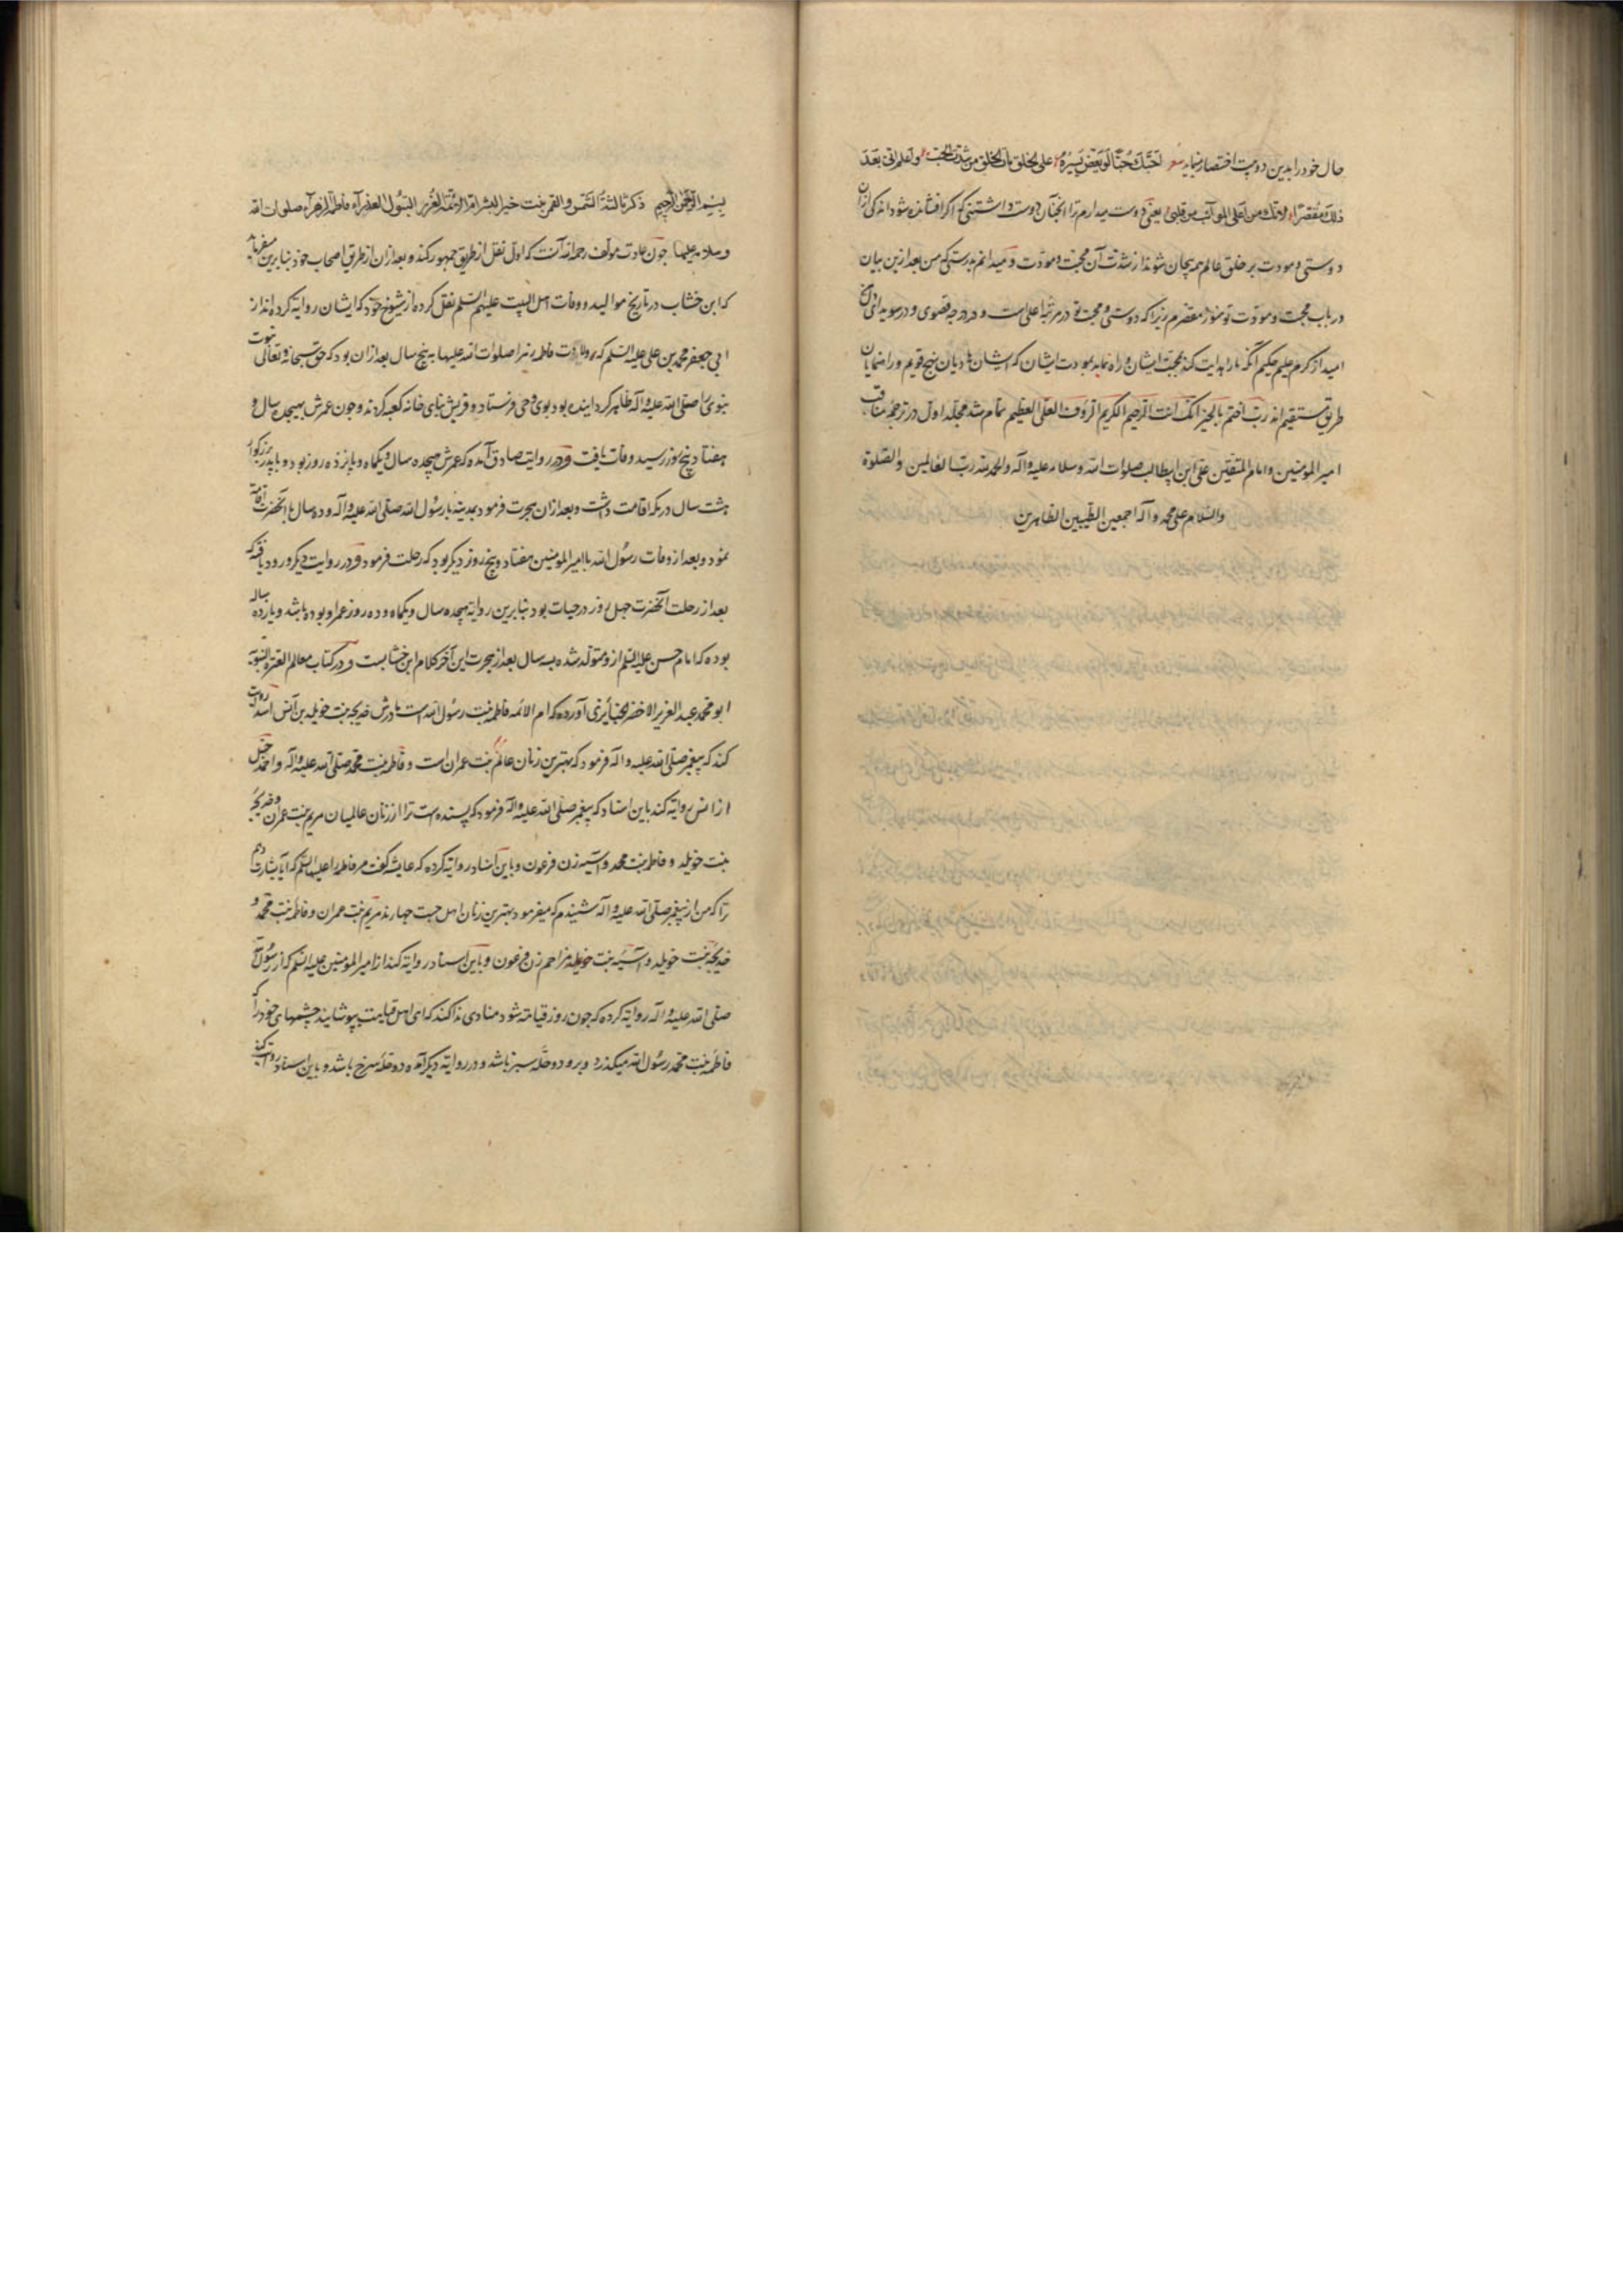 حال خود را بدین دو بیت اختصار نماید شعر احبک حبا لو یفض یسیره علی الخلق مات الخلق من شدة الحب واعلم انی بعد
ذلک مقصرا لانک من اعلی المراتب من قلبی یعنی دوست میدارم ترا انچنان دوست داشتنی که اگر افشانده شود اندکی ازان
دوستی و مودت بر خلق عالم همه بیجان شوند از شدت آن محبت و مودت و میدانم بدرستی که من بعد ازین بیان
در باب محبت و مودت تو هنوز مقصرم زیرا که دوستی و محبت تو در مرتبه اعلی است و در درجه قصوی و در سویدای
امید از کرم علیم حکیم آنکه ما را هدایت کند بمحبت ایشان و راه نماید بمودت ایشان که ایشان هادیان نهج قویم و راهنمایان
طریق مستقیم اند رب اختم بالخیر انک انت الرحیم الکریم الرؤف العلی العظیم تمام شد مجلد اول در ترجمه مناقب
امیر المومنین و امام المتقین علی ابن ابیطالب صلوات الله وسلامه علیه وآله والحمد لله رب العالمین والصلوة
والسلام علی محمد وآله اجمعین الطیبین الطاهرین
بسم الله الرحمن الرحیم ذکر ثالثة الشمس والقمر بنت خیر البشر ام الائمة الغرر البتول العذرآء فاطمة الزهرآء صلوات الله
وسلامه علیها چون عادت مولف رحمه الله آنست که اول نقل از طریق جمهور کند و بعد ازان از طریق اصحاب خود بنابرین میفرماید
که ابن خشاب در تاریخ موالید و وفات اهل البیت علیهم السلم نقل کرده از شیوخ خود که ایشان روایة کرده‌اند از
ابی جعفر محمد بن علی علیه السلم که ولادت فاطمه زهرا صلوات الله علیها به پنج سال بعد ازان بود که حق سبحانه و تعالی نبوت
نبوی را صلی الله علیه وآله ظاهر کردانیده بود بوی وحی فرستاد و قریش بنای خانه کعبه کردند و چون عمرش بهیجده سال و
هفتاد پنج روز رسید وفات یافت و در روایت صادق آمده که عمرش هیجده سال و یکماه و پانزده روز بود و با پدر بزرکوار
هشت سال در مکه اقامت داشت و بعد ازان هجرت فرمود بمدینه با رسول الله صلی الله علیه وآله و ده سال با آنحضرت اقامت
نمود و بعد از وفات رسول الله با امیر المومنین هفتاد و پنج روز دیکر بود که رحلت فرمود و در روایت دیکر ورود یافته که
بعد از رحلت آنحضرت چهل روز در حیات بود بنابرین روایة هیجده سال و یکماه و ده روز عمر او بوده باشد و یازده ساله
بوده که امام حسن علیه السلم ازو متولد شده به سال بعد از هجرت این آخر کلام ابن خشابست و در کتاب معالم العترة النبویة
ابو محمد عبد العزیز الاخضر الجنابذی آورده که ام الائمه فاطمه بنت رسول الله است مادرش خدیجه بنت خویلد بن اسد انس روایت
کند که پیغمبر صلی الله علیه وآله فرمود که بهترین زنان عالم بنت عمران است و فاطمه بنت محمد صلی الله علیه وآله و احمد حنبل
از انس روایة کند باین اسناد که پیغمبر صلی الله علیه وآله فرمود که پسنده است ترا از زنان عالمیان مریم بنت عمران و خدیجه
بنت خویلد و فاطمه بنت محمد و آسیه زن فرعون و باین اسناد روایة کرده که عایشه گفت مر فاطمه را علیها السلم که آیا بشارت دهم
ترا که من از پیغمبر صلی الله علیه وآله شنیدم که میفرمود بهترین زنان اهل جنت چهارند مریم بنت عمران و فاطمه بنت محمد و
خدیجه بنت خویلد و آسیه بنت مزاحم زن فرعون و باین اسناد روایة کند از امیر المومنین علیه السلم که از رسول الله
صلی الله علیه وآله روایة کرده که چون روز قیامة شود منادی ندا کند که ای اهل قیامت بپوشانید چشمهای خود را که
فاطمه بنت محمد رسول الله میکذرد و برو دو حله سبز باشد و در روایة دیکر آمده دو حله سرخ باشد و باین اسناد روایت کند